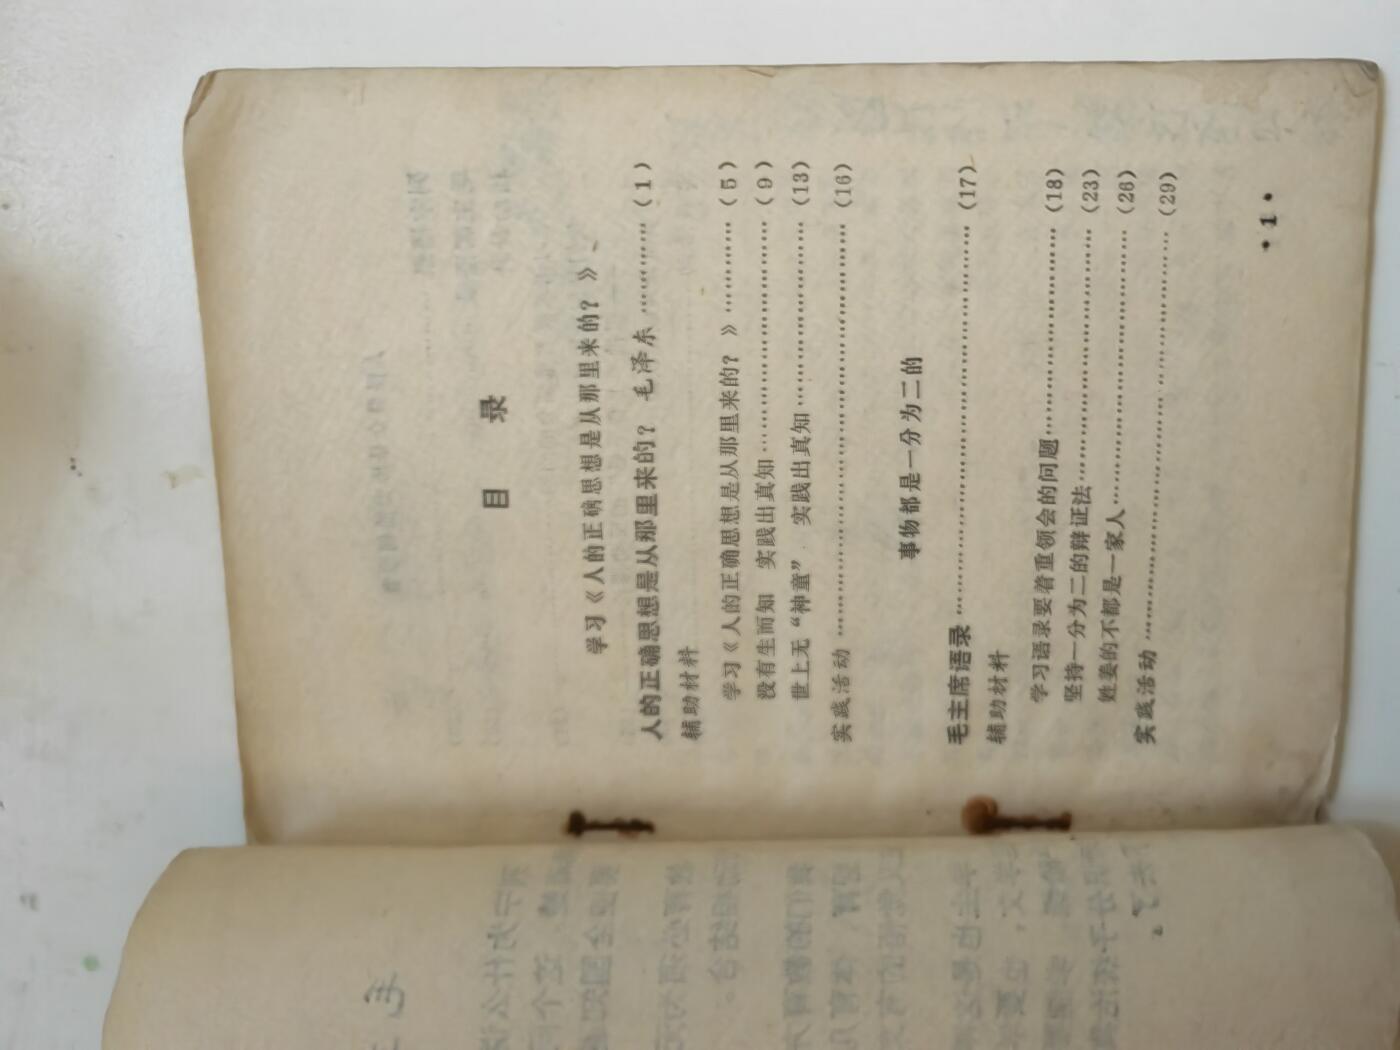 目 录
学习《人的正确思想是从那里来的？》
人的正确思想是从那里来的？ 毛泽东 …………（1）
辅助材料
学习《人的正确思想是从那里来的？》…………（5）
没有生而知 实践出真知…………………………（9）
世上无“神童” 实践出真知……………………（13）
实践活动………………………………………………（16）
事物都是一分为二的
毛主席语录……………………………………………（17）
辅助材料
学习语录要着重领会的问题………………………（18）
坚持一分为二的辩证法……………………………（23）
姓姜的不都是一家人………………………………（26）
实践活动………………………………………………（29）
• 1 •